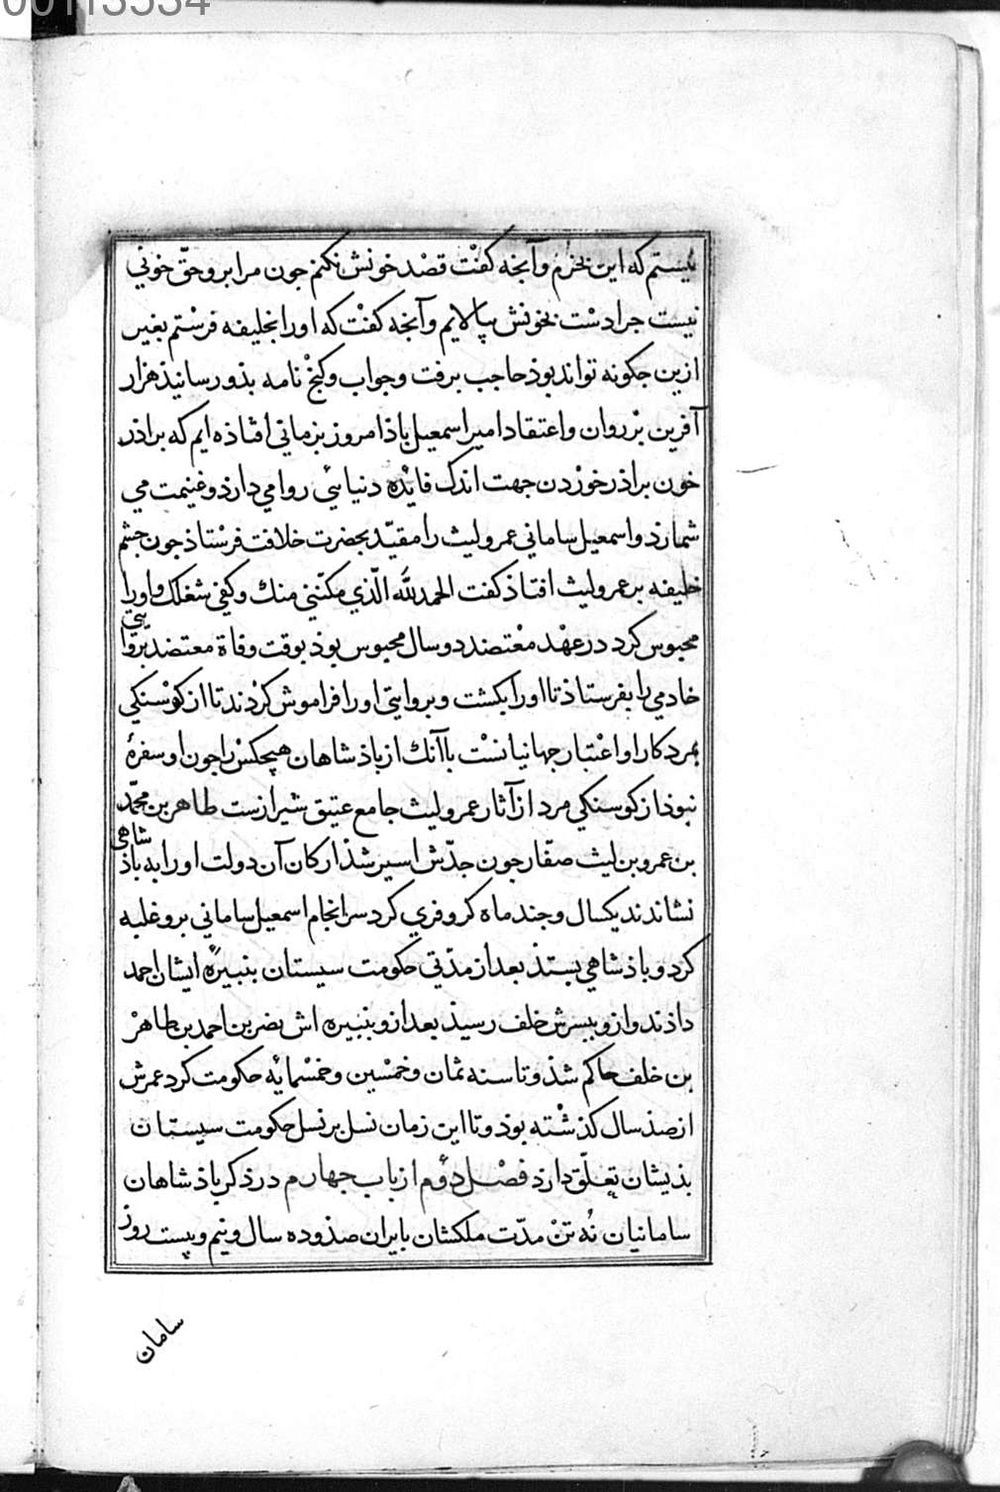 00113534
نیستم که این بخرم و آنچه کفت قصد خونش نکنم جون مرا برو حقّ خونی
نیست جرا دست بخونش بپالایم و آنجه کفت که او را بخلیفه فرستم بغیر
ازین جکونه تواند بوذ حاجب برفت و جواب و کنج نامه بذو رسانیذ هزار
آفرین بر روان و اعتقاد امیر اسمعیل باذ امروز بزمانی افتاذه ایم که براذر
خون براذر خوردن جهت اندک فایده دنیایی روا می دارذ و غنیمت می
شمارذ و اسمعیل سامانی عمرو لیث را مقیّد بحضرت خلافت فرستاذ جون جشم
خلیفه بر عمرو لیث افتاذ کفت الحمد لله الّذی مکّننی منك و کفی شغلک و او را
محبوس کرد در عهد معتضد دو سال محبوس بوذ بوقت وفاة معتضد بروایتی
خادمی را بفرستاذ تا او را بکشت و بروایتی او را فراموش کردند تا از کوسنکی
بمرد کار او اعتبار جهانیانست با آنك از باذشاهان هیچکس را جون او سفرهٔ
نبوذ از کوسنکی مرد از آثار عمرو لیث جامع عتیق شیرازست طاهر بن محمّد
بن عمرو بن لیث صفّار جون جدّش اسیر شذ ارکان آن دولت او را به باذشاهی
نشاندند یکسال و جند ماه کر و فری کرد سرانجام اسمعیل سامانی برو غلبه
کرد و باذشاهی بستذ بعد از مدّتی حکومت سیستان بنبیرهٔ ایشان احمد
داذند و ازو بپسرش خلف رسیذ بعد ازو بنبیره اش نصر بن احمد بن طاهر
بن خلف حاکم شذ و تا سنه ثمان و خمسین و خمسمایه حکومت کرد عمرش
از صذ سال کذشته بوذ و تا این زمان نسل بر نسل حکومت سیستان
بذیشان تعلّق دارذ فصل دوم از باب جهارم در ذکر باذشاهان
سامانیان نُه تن مدّت ملکشان بایران صذ و ده سال و نیم و بیست روز
سامان